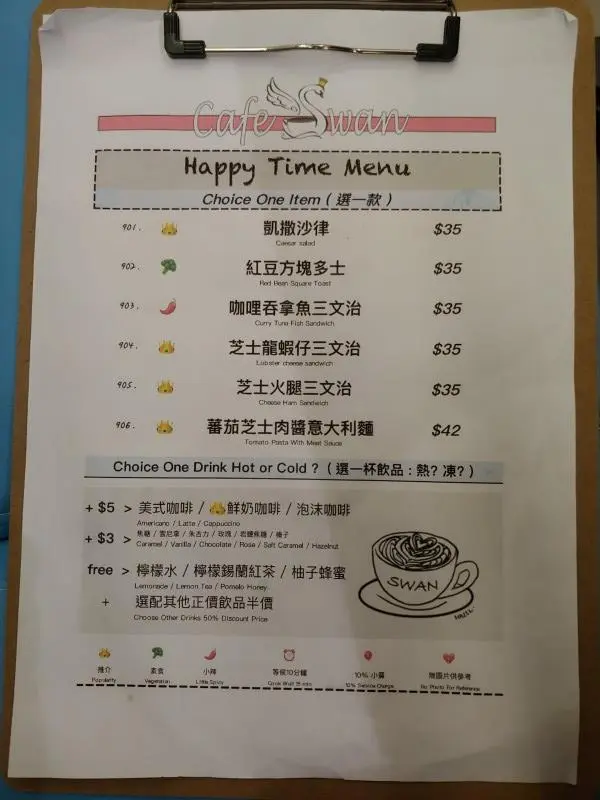 Cafe Swan
Happy Time Menu
Choice One Item ( 選一款 )
901. 凱撒沙律 $35
Caesar salad
902. 紅豆方塊多士 $35
Red Bean Square Toast
903. 咖哩吞拿魚三文治 $35
Curry Tuna Fish Sandwich
904. 芝士龍蝦仔三文治 $35
Lobster cheese sandwich
905. 芝士火腿三文治 $35
Cheese Ham Sandwich
906. 蕃茄芝士肉醬意大利麵 $42
Tomato Pasta With Meat Sauce
Choice One Drink Hot or Cold ? ( 選一杯飲品 : 熱? 凍? )
+ $5 > 美式咖啡 / 鮮奶咖啡 / 泡沫咖啡
Americano / Latte / Cappuccino
+ $3 > 焦糖 / 雲尼拿 / 朱古力 / 玫瑰 / 岩鹽焦糖 / 榛子
Caramel / Vanilla / Chocolate / Rose / Salt Caramel / Hazelnut
free > 檸檬水 / 檸檬錫蘭紅茶 / 柚子蜂蜜
Lemonade / Lemon Tea / Pomelo Honey
+ 選配其他正價飲品半價
Choose Other Drinks 50% Discount Price
SWAN
推介 素食 小辣 等候10分鐘 10% 小費 無圖片供參考
Popularity Vegetarian Little Spicy Cook Wait 15 min 10% Service Charge No Photo For Reference